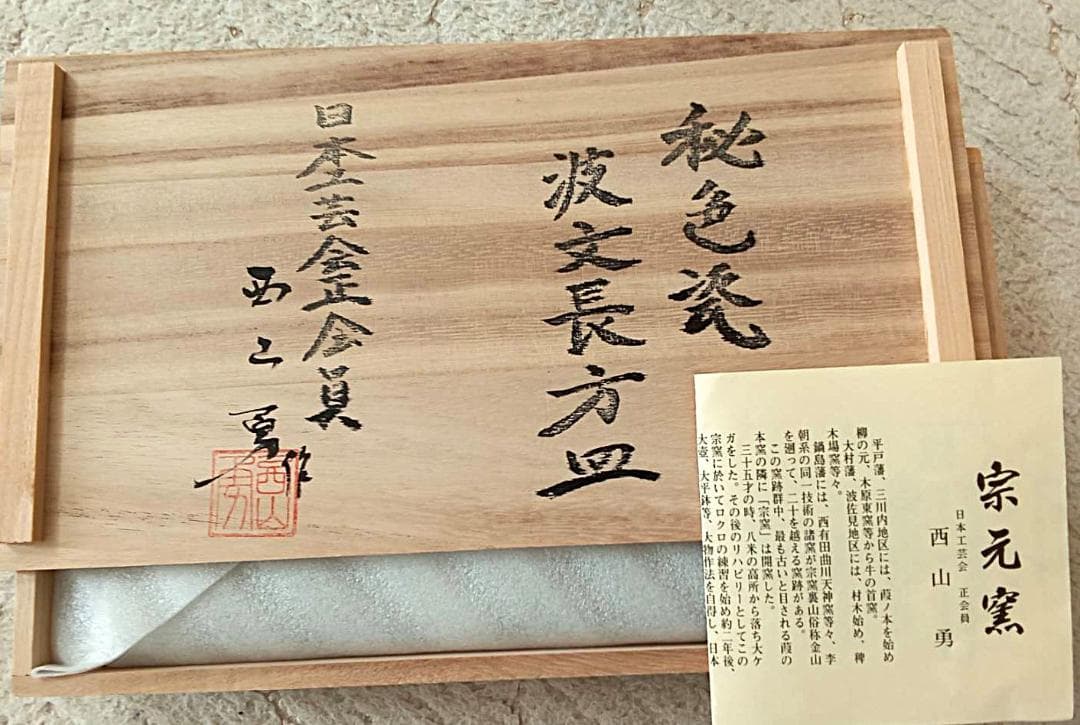 秘色瓷
波文長方皿
日本工芸会正会員
西山勇作
西山勇
宗元窯
日本工芸会 正会員
西山 勇
平戸藩、三川内地区には、葭ノ本を始め
柳の元、木原東窯等から牛の首窯。
大村藩、波佐見地区には、村木始め、稗
木場窯等々。
鍋島藩には、西有田曲川天神窯等々、李
朝系の同一技術の諸窯が宗窯裏山俗称金山
を廻って、二十を越える窯跡がある。
この窯跡群中、最も古いと目される葭の
本窯の隣に「宗窯」は開窯した。
三十五才の時、八米の高所から落ち大ケ
ガをした。その後のリハビリーとしてこの
宗窯に於いてロクロの練習を始め約二年後、
大壺、大平鉢等、大物作法を自得し、日本